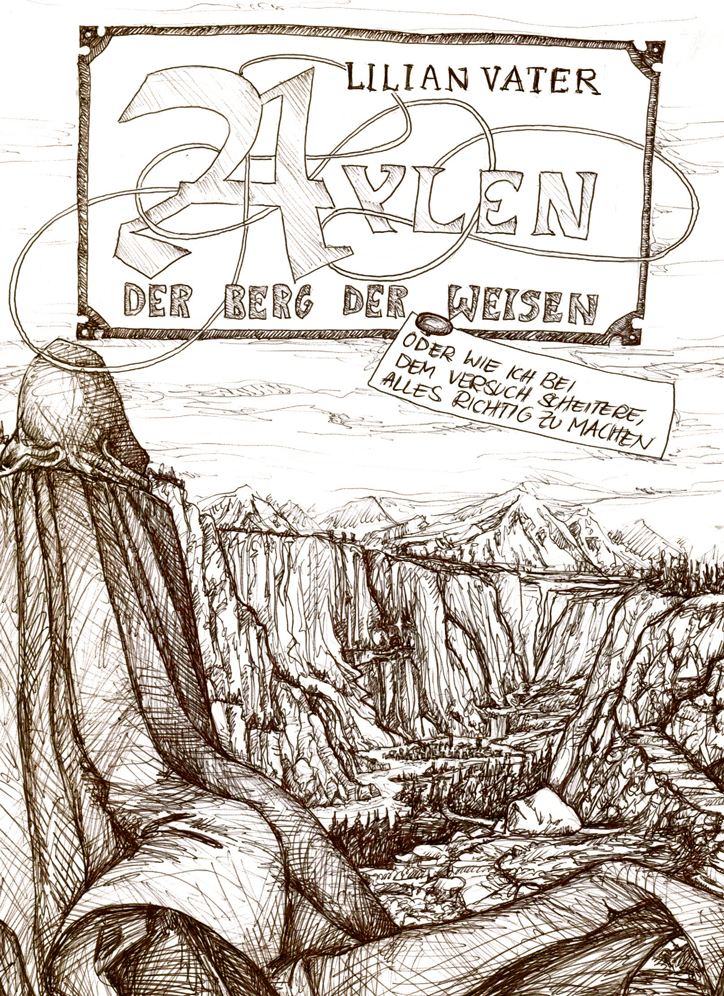 LILIAN VATER
AYLEN
DER BERG DER WEISEN
ODER WIE ICH BEI
DEM VERSUCH SCHEITERE,
ALLES RICHTIG ZU MACHEN